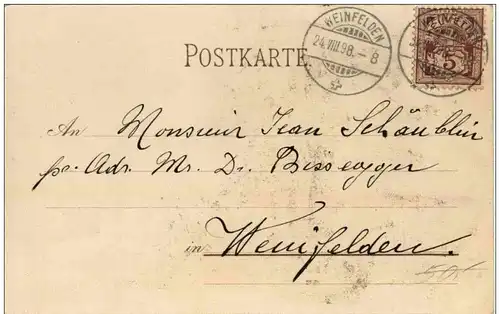 WEINFELDEN
24.VIII.98.-8
POSTKARTE.
5
An Monsieur Jean Schäublin
pr. Adr. Mr. Dr. Bissegger
in Weinfelden.